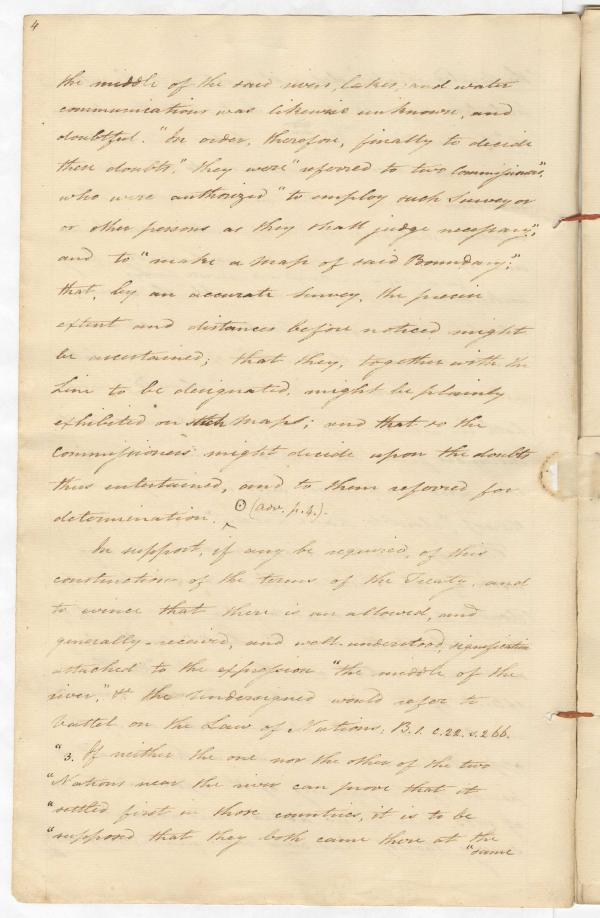 4
the middle of the said rivers, lakes, and water
communications was likewise unknown, and
doubtful. "In order, therefore, finally to decide
these doubts," they were "referred to two Commissioners",
who were authorized "to employ such Surveyor
or other persons as they shall judge necessary";
and to "make a Map of said Boundary;"
that, by an accurate Survey, the precise
extent and distances before noticed might
be ascertained; that they, together with the
Line to be designated, might be plainly
exhibited on such Maps; and that so the
Commissioners might decide upon the doubts
thus entertained, and to them referred for
determination. ⊙ (adv. p. 4.).
In support, if any be required, of this
construction of the terms of the Treaty, and
to evince that there is an allowed, and
generally-received, and well-understood, signification
attached to the expression "the middle of the
river," &c. the Undersigned would refer to
Vattel on the Law of Nations; B. 1. c. 22. s. 266.
"3. If neither the one nor the other of the two
"Nations near the river can prove that it
"settled first in those countries, it is to be
"supposed that they both came there at the
"same